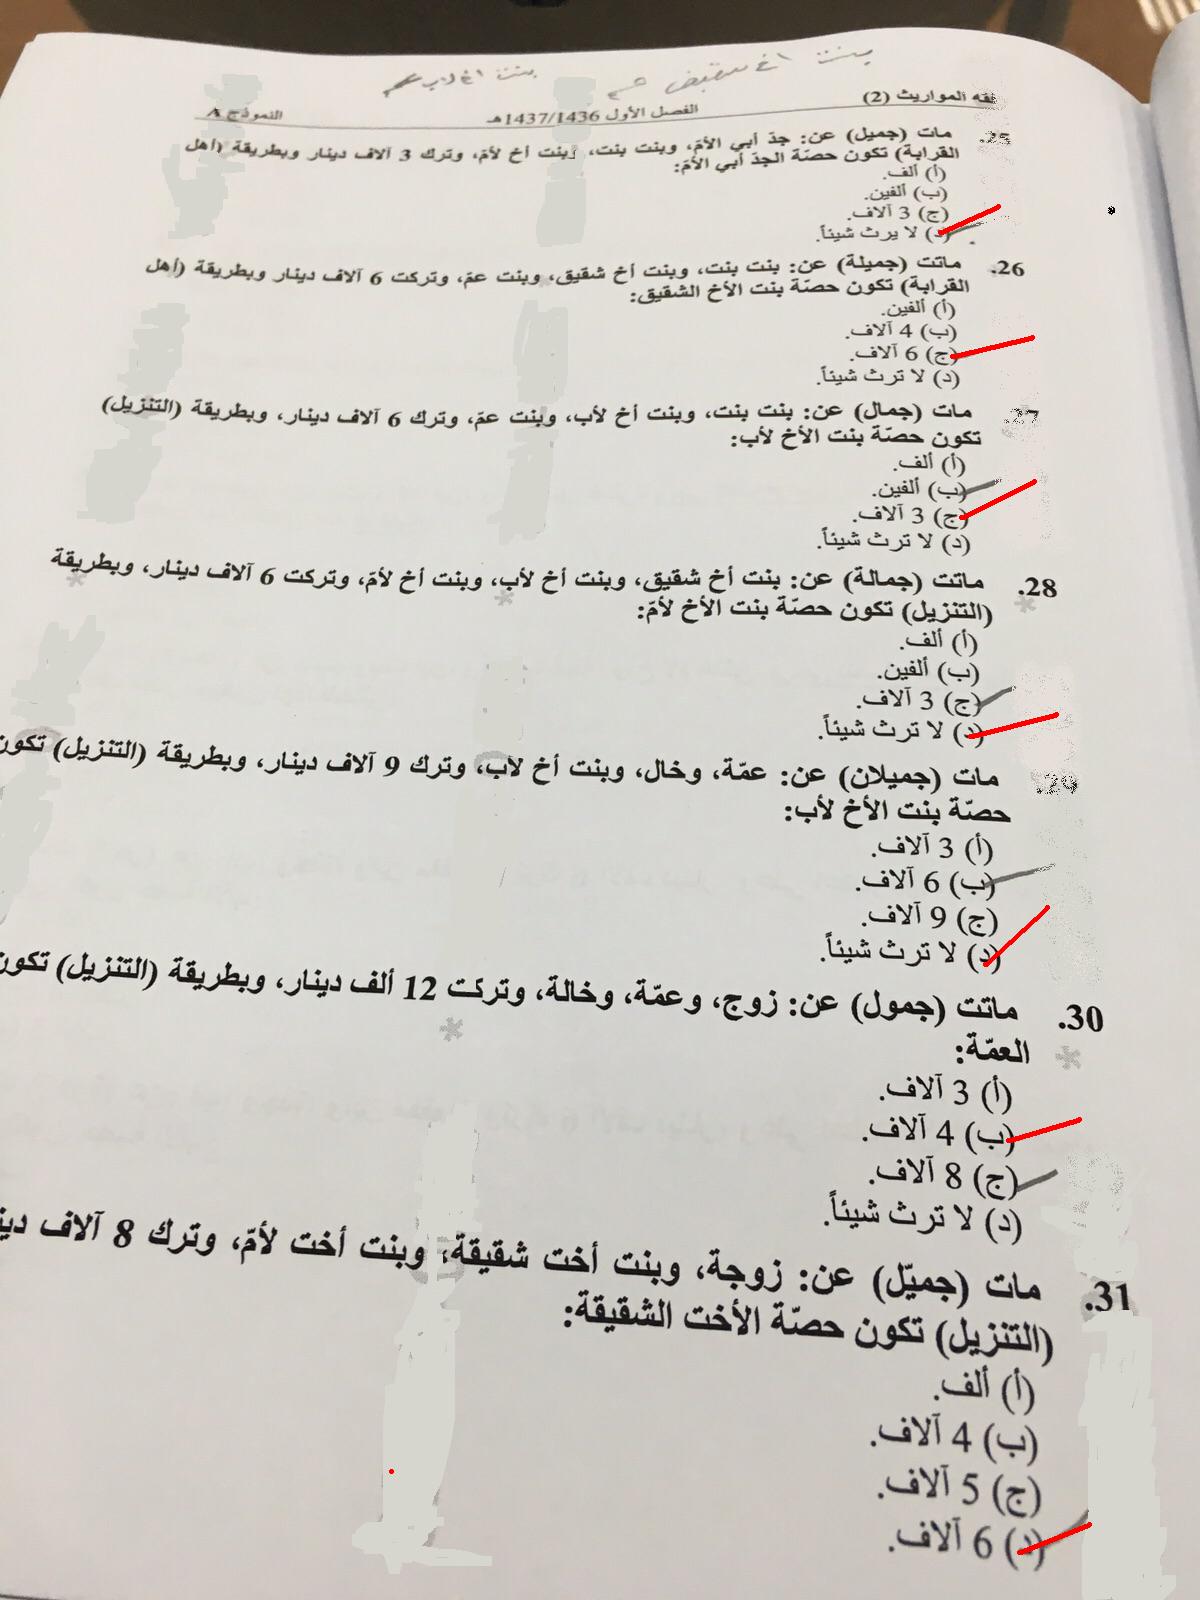 بنت اخ شقيق بنت اخ لاب
فقه المواريث (2) الفصل الأول 1437/1436هـ النموذج A
25. مات (جميل) عن: جدّ أبي الأمّ، وبنت بنت، وبنت أخ لأمّ، وترك 3 آلاف دينار وبطريقة (أهل
القرابة) تكون حصّة الجدّ أبي الأمّ:
(أ) ألف.
(ب) ألفين.
(ج) 3 آلاف.
(د) لا يرث شيئاً.
26. ماتت (جميلة) عن: بنت بنت، وبنت أخ شقيق، وبنت عمّ، وتركت 6 آلاف دينار وبطريقة (أهل
القرابة) تكون حصّة بنت الأخ الشقيق:
(أ) ألفين.
(ب) 4 آلاف.
(ج) 6 آلاف.
(د) لا ترث شيئاً.
27. مات (جمال) عن: بنت بنت، وبنت أخ لأب، وبنت عمّ، وترك 6 آلاف دينار، وبطريقة (التنزيل)
تكون حصّة بنت الأخ لأب:
(أ) ألف.
(ب) ألفين.
(ج) 3 آلاف.
(د) لا ترث شيئاً.
28. ماتت (جمالة) عن: بنت أخ شقيق، وبنت أخ لأب، وبنت أخ لأمّ، وتركت 6 آلاف دينار، وبطريقة
(التنزيل) تكون حصّة بنت الأخ لأمّ:
(أ) ألف.
(ب) ألفين.
(ج) 3 آلاف.
(د) لا ترث شيئاً.
29. مات (جميلان) عن: عمّة، وخال، وبنت أخ لاب، وترك 9 آلاف دينار، وبطريقة (التنزيل) تكون
حصّة بنت الأخ لأب:
(أ) 3 آلاف.
(ب) 6 آلاف.
(ج) 9 آلاف.
(د) لا ترث شيئاً.
30. ماتت (جمول) عن: زوج، وعمّة، وخالة، وتركت 12 ألف دينار، وبطريقة (التنزيل) تكون
العمّة:
(أ) 3 آلاف.
(ب) 4 آلاف.
(ج) 8 آلاف.
(د) لا ترث شيئاً.
31. مات (جميّل) عن: زوجة، وبنت أخت شقيقة، وبنت أخت لأمّ، وترك 8 آلاف
(التنزيل) تكون حصّة الأخت الشقيقة:
(أ) ألف.
(ب) 4 آلاف.
(ج) 5 آلاف.
(د) 6 آلاف.